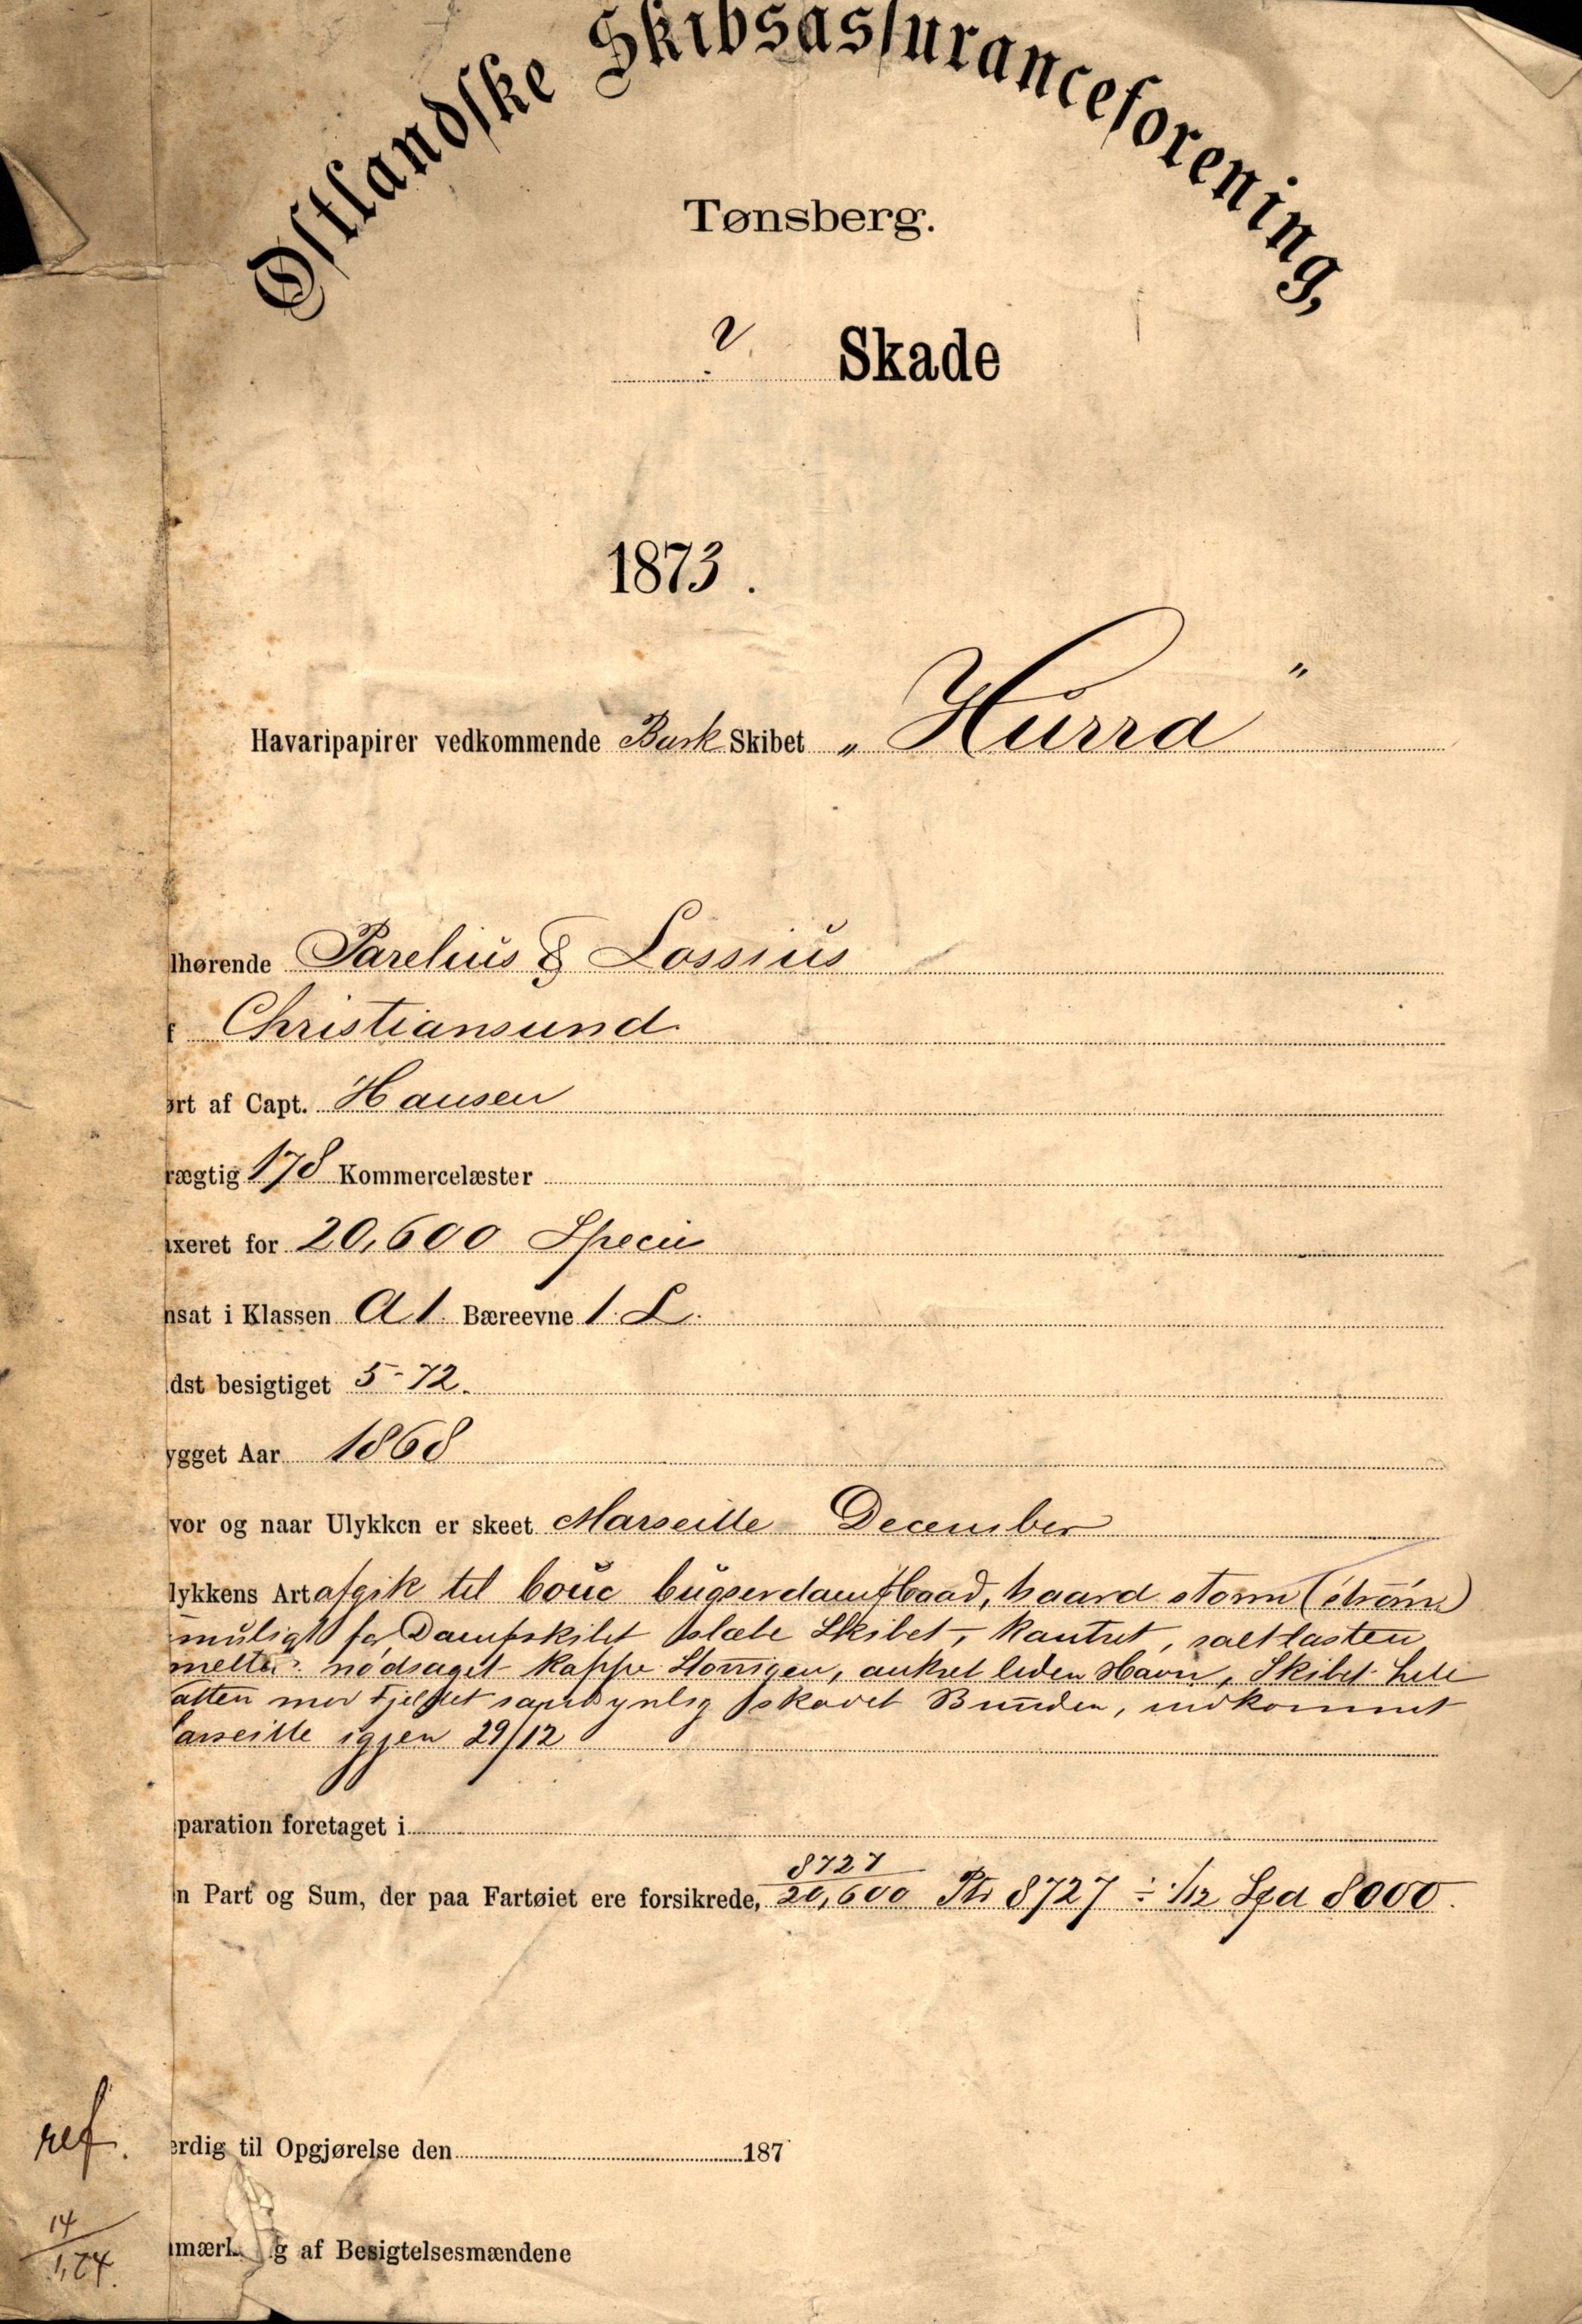 Østlandske Skibsassuranceforening,
Tønsberg.
Skade
1873.
Havaripapirer vedkommende Bark Skibet „Hurra"
lhørende Parelius & Lossius
f Christiansund
ørt af Capt. Hansen
rægtig 178 Kommercelæster
axeret for 20,600 Specie
nsat i Klassen A1. Bæreevne 1. L.
dst besigtiget 5-72.
ygget Aar 1868
vor og naar Ulykken er skeet Marseille December
lykkens Art afgik til bouc bugserdampbaad, haard storm (strøm)
muligt for Dampskibet slæbe Skibet, kantret, saltlasten
melter nødsaget kappe Stormgen, ankret liden Havn, Skibet hele
atten mod Fjeldet sandsynlig skadet Bunden, indkommet
arseille igjen 29/12
paration foretaget i
n Part og Sum, der paa Fartøiet ere forsikrede, 8727/20,600 Pts 8727 ÷ 1/12 Spd 8000.
ref.
erdig til Opgjørelse den 187
14/1.74.
mærk g af Besigtelsesmændene